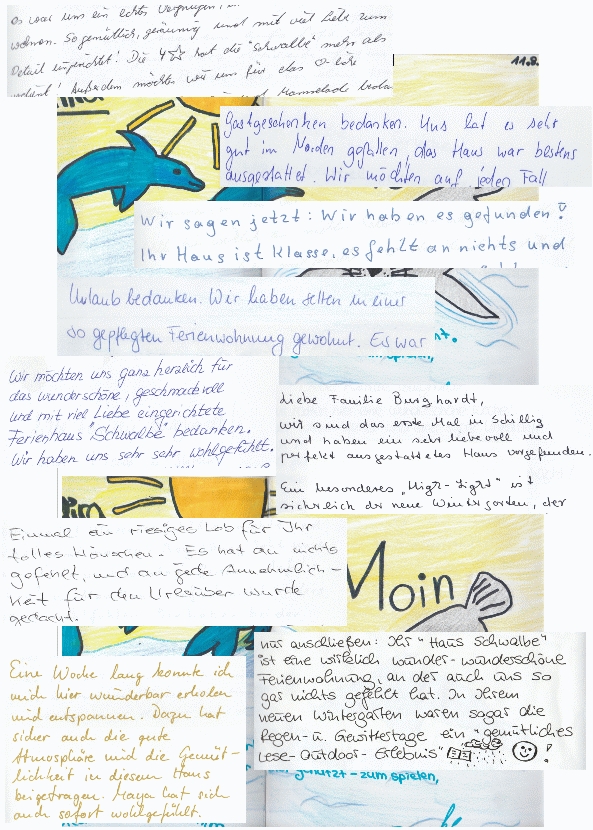 es war uns ein echtes Vergnügen,
wohnen. So gemütlich, geräumig und mit viel Liebe zum
Detail eingerichtet! Die 4☆ hat die "Schwalbe" mehr als
verdient! Außerdem möchten wir uns für das
und Marmelade
11.9.
Gastgeschenken bedanken. Uns hat es sehr
gut im Norden gefallen, das Haus war bestens
ausgestattet. Wir möchten auf jeden Fall
Wir sagen jetzt: Wir haben es gefunden!
Ihr Haus ist Klasse, es fehlt an nichts und
Urlaub bedanken. Wir haben selten in einer
so gepflegten Ferienwohnung gewohnt. Es war
Wir möchten uns ganz herzlich für
das wunderschöne, geschmackvoll
und mit viel Liebe eingerichtete
Ferienhaus "Schwalbe" bedanken.
Wir haben uns sehr sehr wohlgefühlt.
Liebe Familie Burghardt,
wir sind das erste Mal in Schillig
und haben ein sehr liebevoll und
perfekt ausgestattetes Haus vorgefunden.
Ein besonderes "High-Light" ist
sicherlich der neue Wintergarten, der
Einmal ein riesiges Lob für Ihr
tolles Häuschen. Es hat an nichts
gefehlt, und an jede Annehmlich-
keit für den Urlauber wurde
gedacht.
Moin
nur anschließen: Ihr "Haus Schwalbe"
ist eine wirklich wunder-wunderschöne
Ferienwohnung, an der auch uns so
gar nichts gefehlt hat. In Ihrem
neuen Wintergarten waren sogar die
Regen- u. Gewittertage ein "gemütliches
Lese-Outdoor-Erlebnis" !
Eine Woche lang konnte ich
mich hier wunderbar erholen
und entspannen. Dazu hat
sicher auch die gute
Atmosphäre und die Gemüt-
lichkeit in diesem Haus
beigetragen. Maya hat sich
auch sofort wohlgefühlt.
- zum spielen,